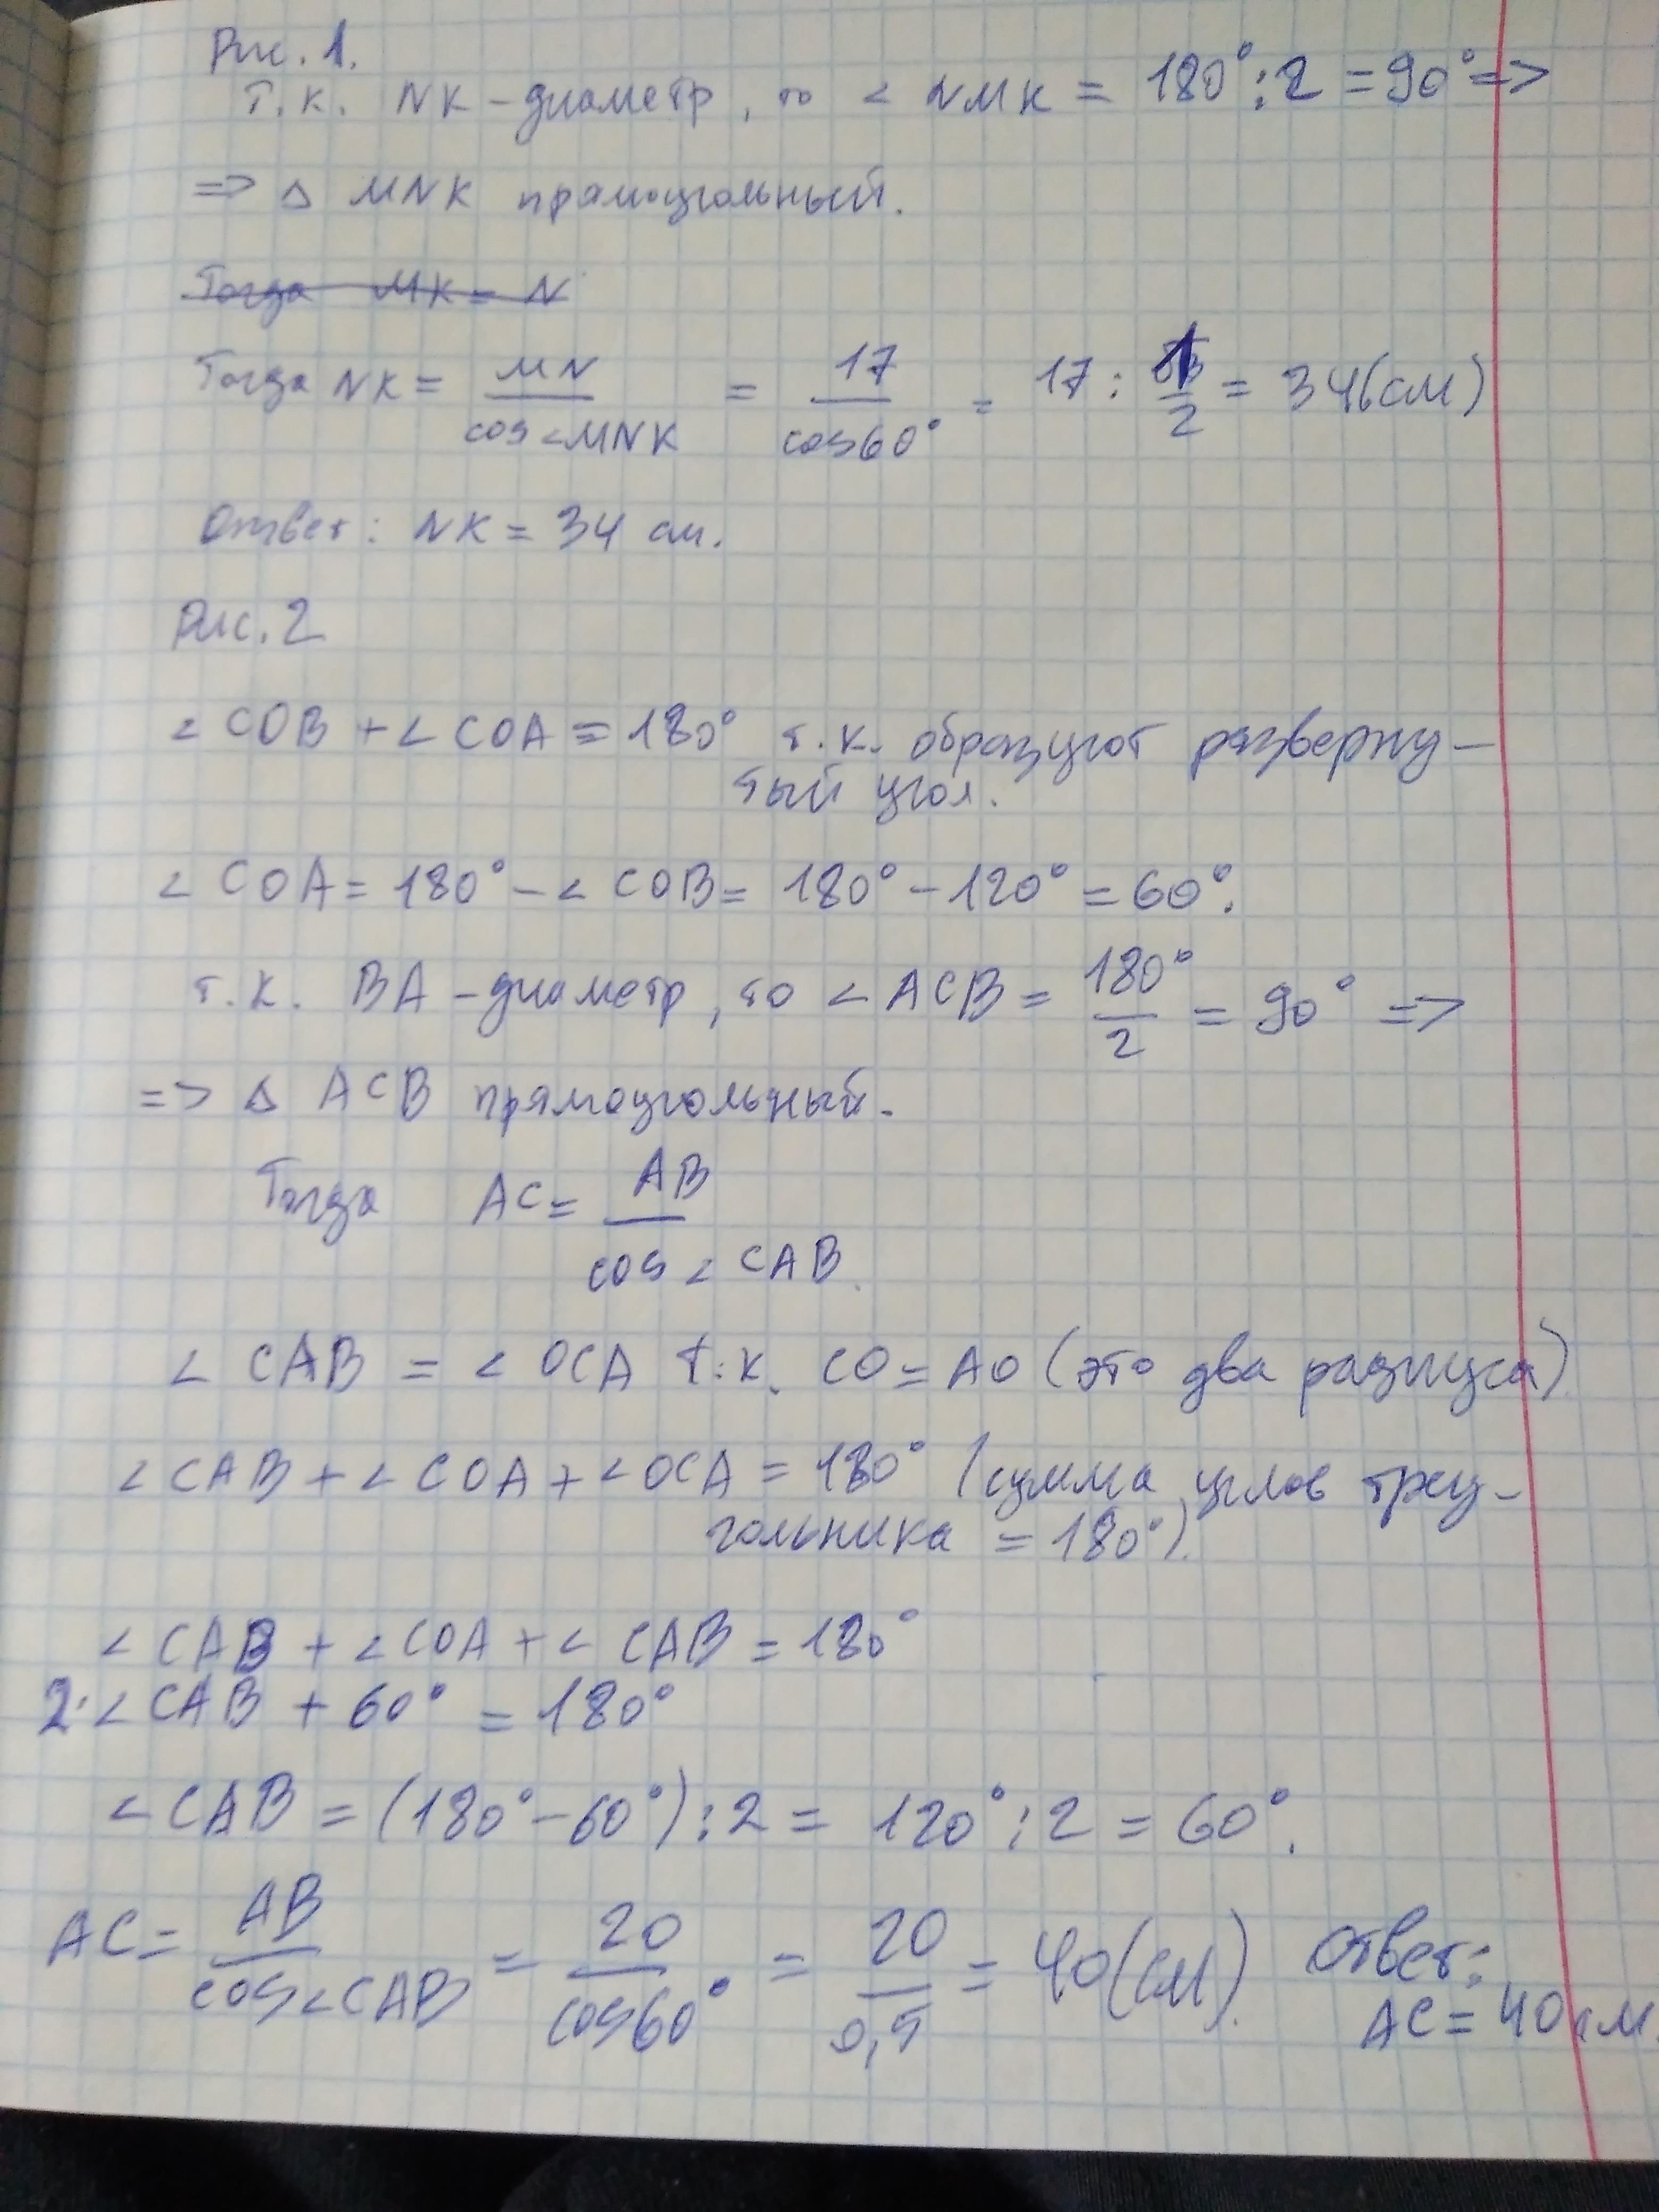 Рис. 1.
т.к. NK - диаметр, то ∠ NMK = 180° : 2 = 90° =>
=> Δ MNK прямоугольный.
Тогда MK = N
Тогда NK = MN / cos∠MNK = 17 / cos60° = 17 : 1/2 = 34(см)
Ответ: NK = 34 см.
Рис. 2
∠ COB + ∠ COA = 180° т.к. образуют разверну-
тый угол.
∠ COA = 180° - ∠ COB = 180° - 120° = 60°.
т.к. BA - диаметр, то ∠ ACB = 180° / 2 = 90° =>
=> Δ ACB прямоугольный.
Тогда AC = AB / cos ∠ CAB.
∠ CAB = ∠ OCA т.к. CO = AO (это два радиуса)
∠ CAB + ∠ COA + ∠ OCA = 180° (сумма углов треу-
гольника = 180°).
∠ CAB + ∠ COA + ∠ CAB = 180°
2·∠ CAB + 60° = 180°
∠ CAB = (180° - 60°) : 2 = 120° : 2 = 60°.
AC = AB / cos∠CAB = 20 / cos60° = 20 / 0,5 = 40(см). Ответ:
AC = 40 см.